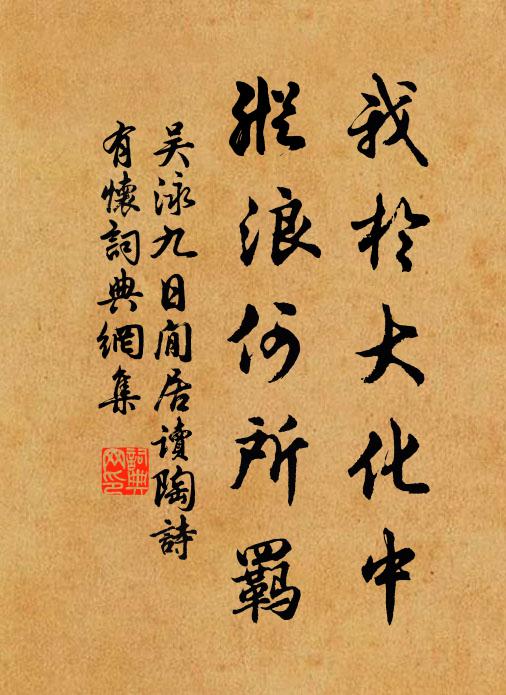 我於大化中
縱浪何所羈
吴泳九日閒居讀陶詩
有懷詞典網集
詞典
网印